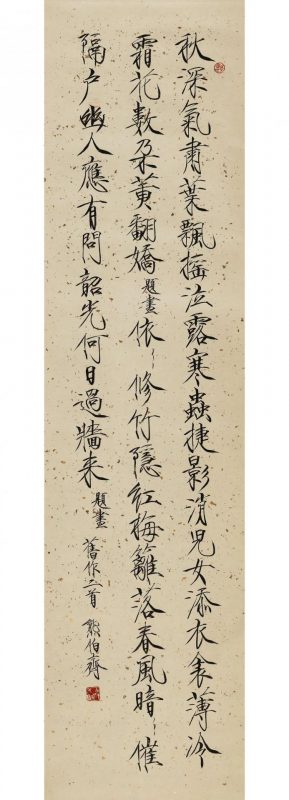 秋深氣肅葉飄搖泣露寒蟲捷影消兒女添衣衾薄冷
霜花數朵黃翻嬌題畫依〻修竹隱紅梅籬落春風暗〻催
隔户幽人應有問韶光何日過牆来題畫舊作二首熊伯齊